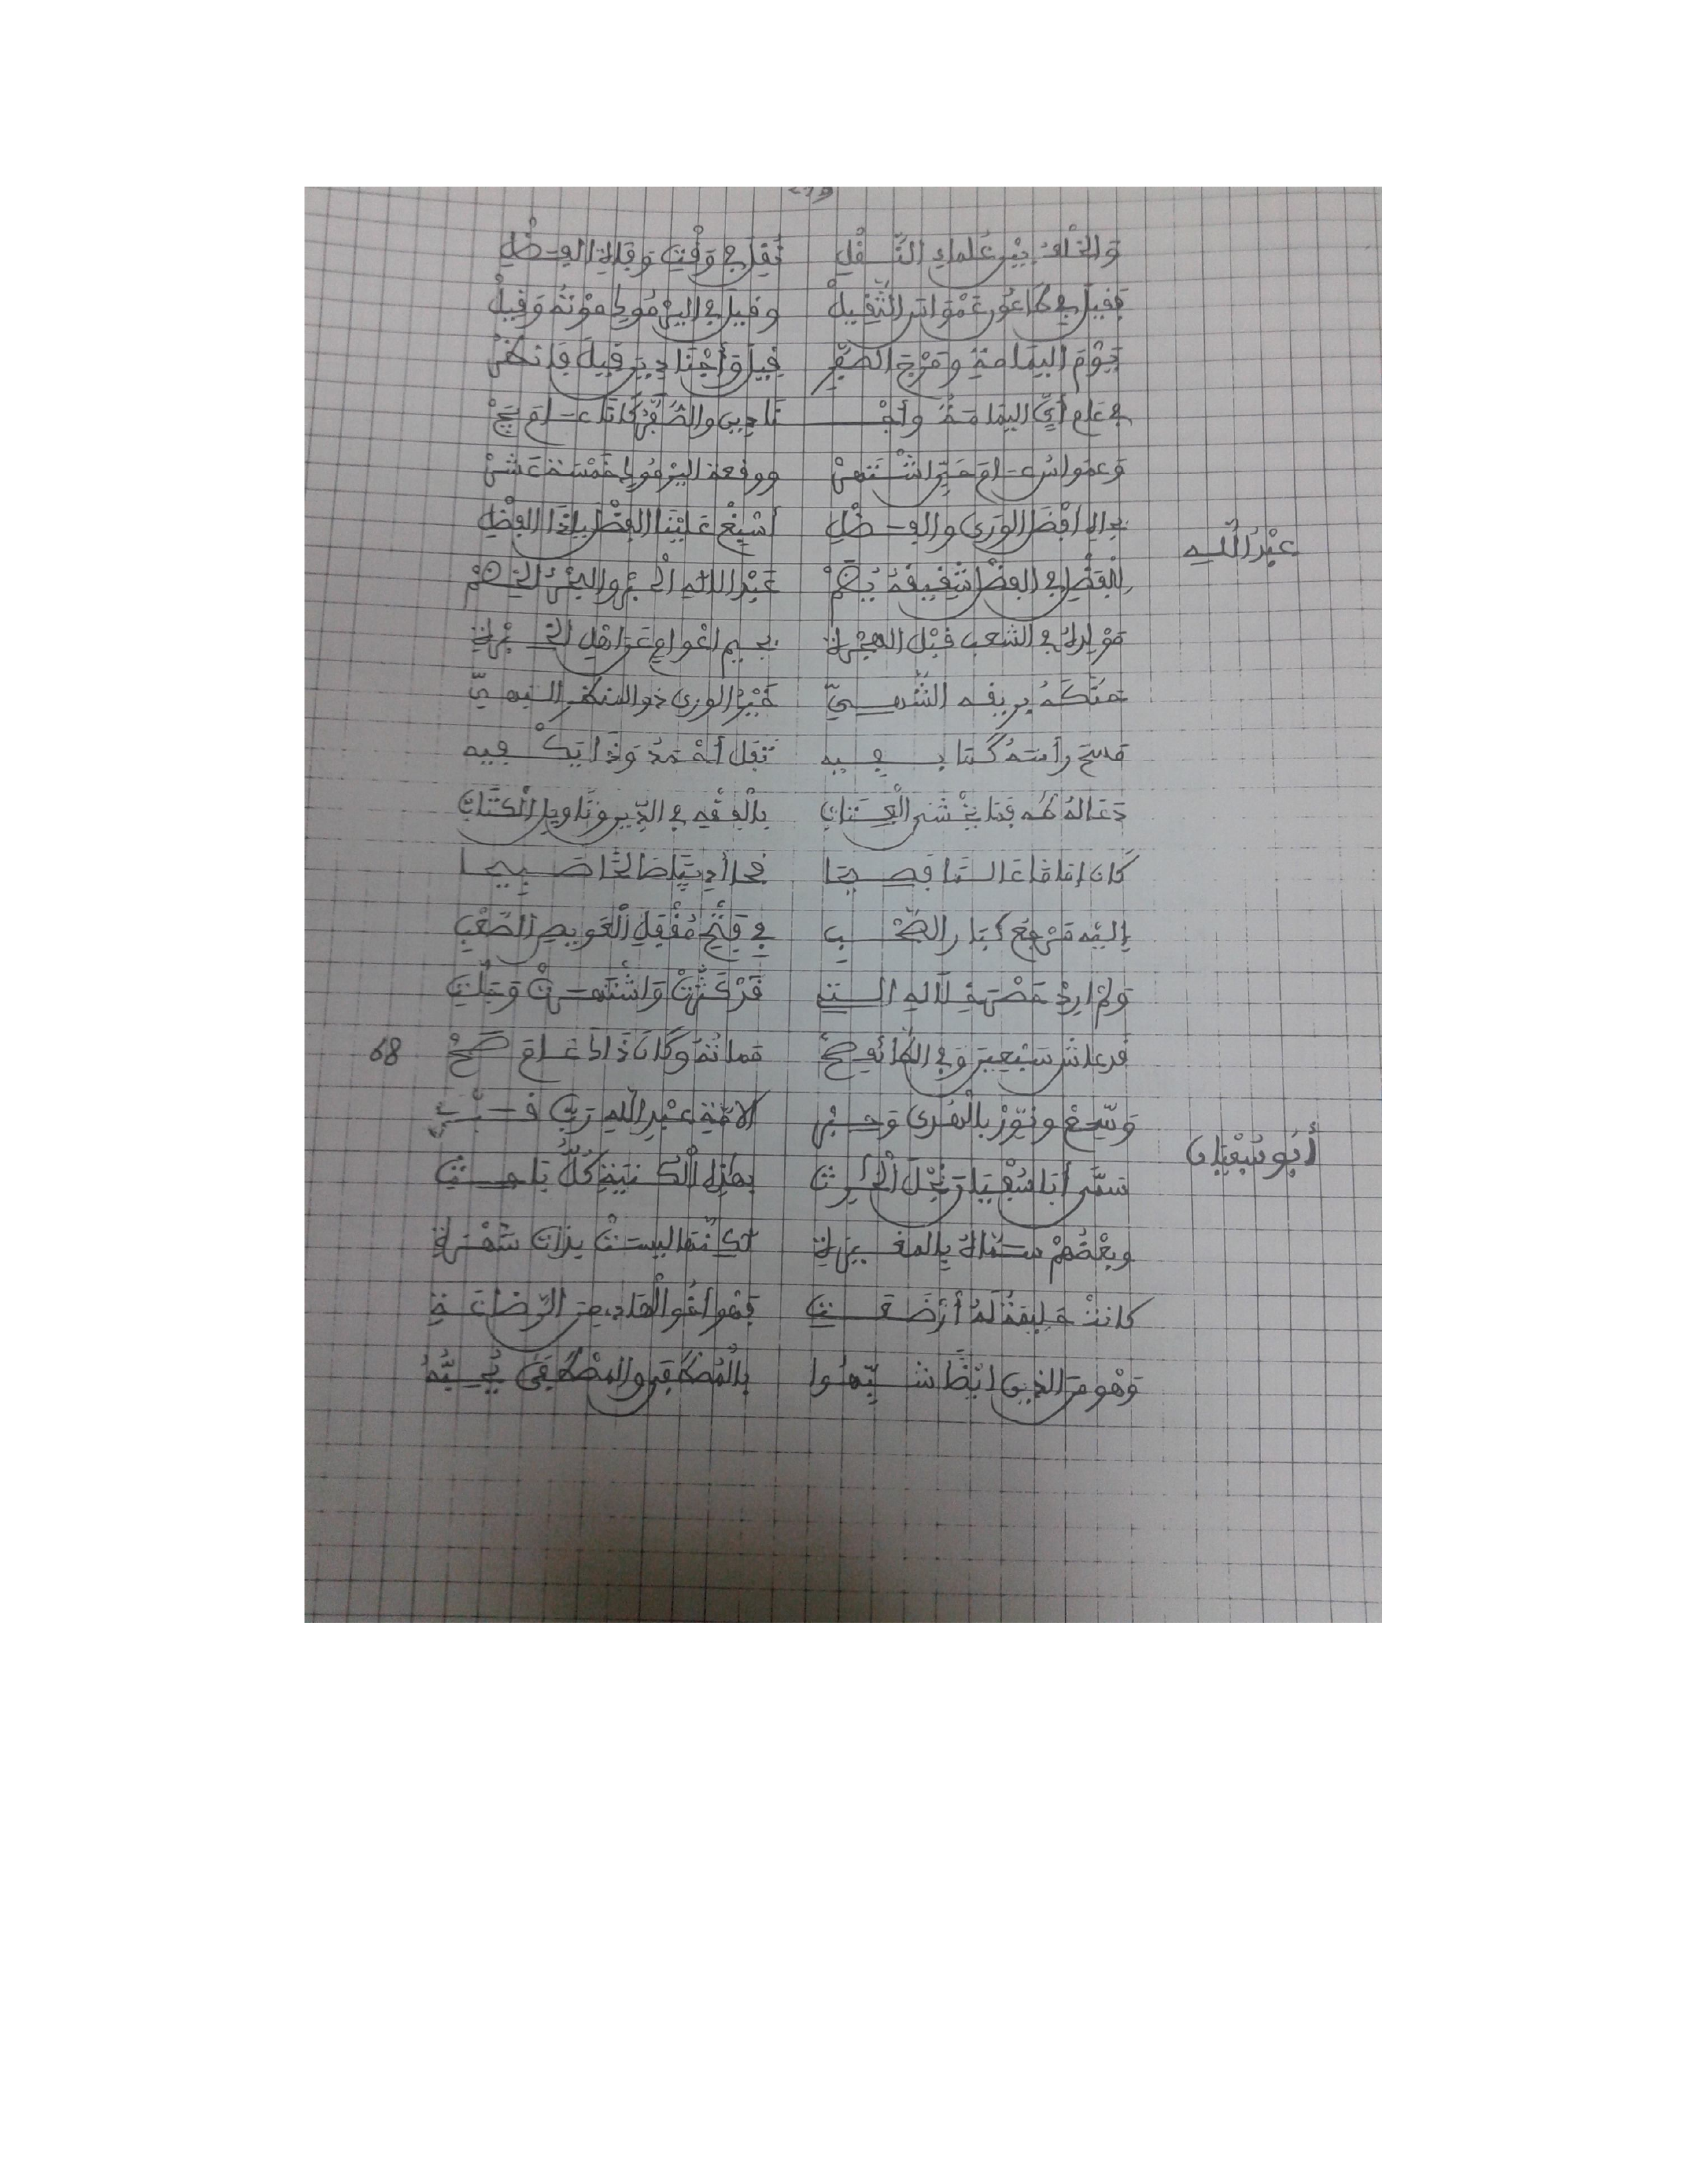 والخلف بين علماء النقل نقل في وقت وفاة الفضل
فقيل في طاعون عمواس الثقيل وقيل في اليرموك موته وقيل
يوم اليمامة ومرج الصفر قيل وأجنادين قيل فانظر
في عام أي اليمامة وأجـ ـنادين والصفر كانا عام يج
وعمواس عام حي اشتهر ووقعة اليرموك خمسة عشر
بجاه أفضل الورى والفضل أسبغ علينا الفضل ياذا الفضل
عبد الله
للفضل في الفضل شقيقه يضم عبد الله الحبر والبحر الخضم
مولده في الشعب قبل الهجرة
حنكه بريقه الشهي خير الورى ذو المنظر البهي
مسح رأسه كتابـ ـفيه تفل أحمد وذا يكفيه
دعا له طه بالفقه في الدين وتأويل الكتاب
كان إماما عالما فصيحا صبيحا
إليه مرجع كبار الصحب في فتح مقفل العويص الصعب
ولم أرد حصر خلاله التي قد كثرت واشتهرت وجلت
قد عاش سبعين وفي الطائف صح مماته وكان ذا عام صح
68
أبو سفيان
وسع ونور بالهدى لأمة عبد الله رب
سمى أبا سفيان نجل الحارث بهذه الكنية كل باحث
وبعضهم سماه بالمغيرة لكنها ليست بذات شهرة
كانت حليمة له أرضعت فهو أخو الهادي من الرضاعة
وهو من الذين أيضا شبهوا بالمصطفى والمصطفى يحبه